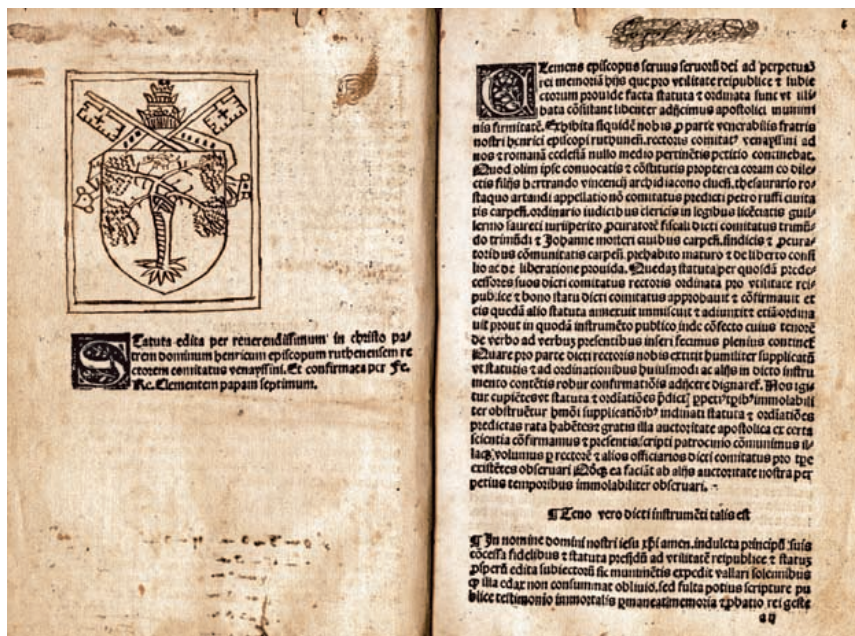 Statuta edita per reuerendissimum in christo pa
trem dominum henricum episcopum ruthenensem re
ctorem comitatus venayssini. Et confirmata per Fe.
Rc. Clementem papam septimum.
Clemens episcopus seruus seruorũ dei ad perpetuaʒ
rei memoriã hijs que pro vtilitate reipublice ⁊ subie
ctorum prouide facta statuta ⁊ ordinata sunt vt illi
bata cõsistant libenter adijcimus apostolici munimi
nis firmitatẽ. Exhibita siquidẽ nobis ꝓ parte venerabilis fratris
nostri henrici episcopi ruthunẽ. rectoris comitatꝰ venayssini ad
nos ⁊ romanã ecclesiã nullo medio pertinẽtis petitio continebat.
Quod olim ipse conuocatis ⁊ cõstitutis propterea coram eo dile
ctis filijs bertrando vincencij archidiacono cluceñ. thesaurario ro
staquo artandi appellationũ comitatus predicti petro ruffi ciuita
tis carpeñ. ordinario iudicibus clericis in legibus licẽciatis guil
lermo saureti iurisperito ꝓcuratorẽ fiscali dicti comitatus trimũ
do trimũdi ⁊ Johanne motteri ciuibus carpeñ. sindicis ⁊ ꝓcura
toribus cõmunitatis carpeñ. prehabito maturo ⁊ de liberto consi
lio ac de liberatione prouida. Quedaʒ statuta per quosdã prede
cessores suos dicti comitatus rectoris ordinata pro vtilitate rei
publice ⁊ bono statu dicti comitatus approbauit ⁊ cõfirmauit et
eis quedã alio statuta annexuit immiscuit ⁊ adiunxit etiã ordina
uit prout in quodã instrumẽto publico inde cõfecto cuius tenorẽ
de verbo ad verbuʒ presentibus inseri fecimus plenius continet̃
Quare pro parte dicti rectoris nobis extitit humiliter supplicatũ
vt statutis ⁊ ad ordinationibus huiusmodi ac alijs in dicto instru
mento contẽtis robur confirmatiõis adijcere dignaret̃. Nos igi
tur cupiẽtes vt statuta ⁊ ordiatiões p̃dict̃ ꝑpetꝰ immolabili
ter obseruẽtur hmõi supplicatiõibꝰ indinati statuta ⁊ ordiatiões
predictas rata habẽtes ⁊ gratis illa auctoritate apostolica ex certa
scientia cõfirmamus ⁊ presentis scripti patrocinio cõmunimus il
laqꝫ volumus ꝑ rectorẽ ⁊ alios officiarios dicti comitatus pro tꝑe
existẽtes obseruari ea faciãt ab alijs auctoritate nostra per
petius temporibus immolabiliter obseruari.
¶ Teno vero dicti instrumẽti talis est
¶ In nomine domini nostri iesu xp̃i amen. indulcta principũ suis
cõcessa fidelibus ⁊ statuta presidũ ad vtilitatẽ reipublice ⁊ statuʒ
ꝓsperũ edita subiectorũ sic munimẽtis expedit vallari solennibus
ꝙ illa edax non consummat obliuio. sed fulta potius scripture pu
blice testimonio immortalis ꝑmaneat memoria ⁊ ꝓbatio rei geste
a ij